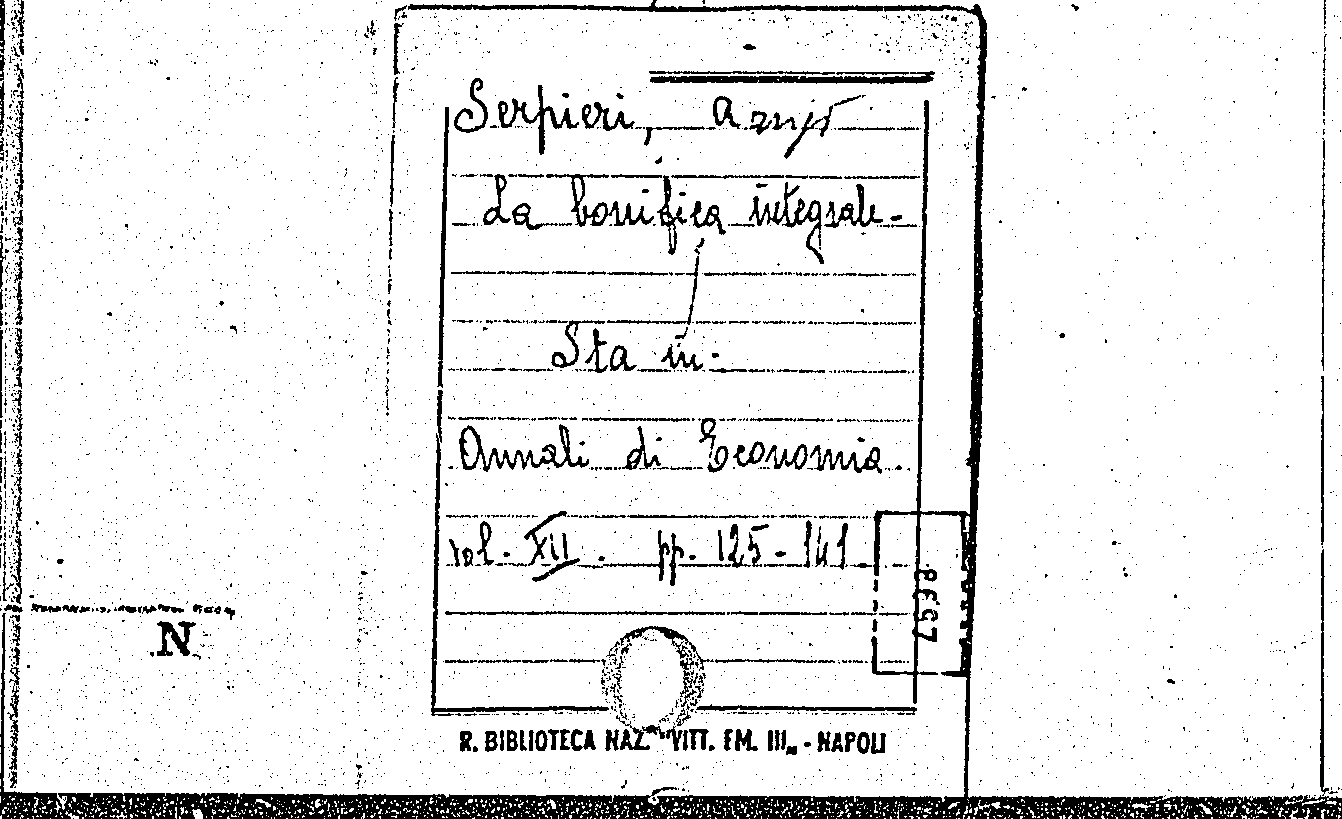 Serpieri, Arrigo
La bonifica integrale -
Sta in:
Annali di Economia.
vol. XII. pp. 125 - 141.
R. BIBLIOTECA NAZ. "VITT. EM. III„ - NAPOLI
N